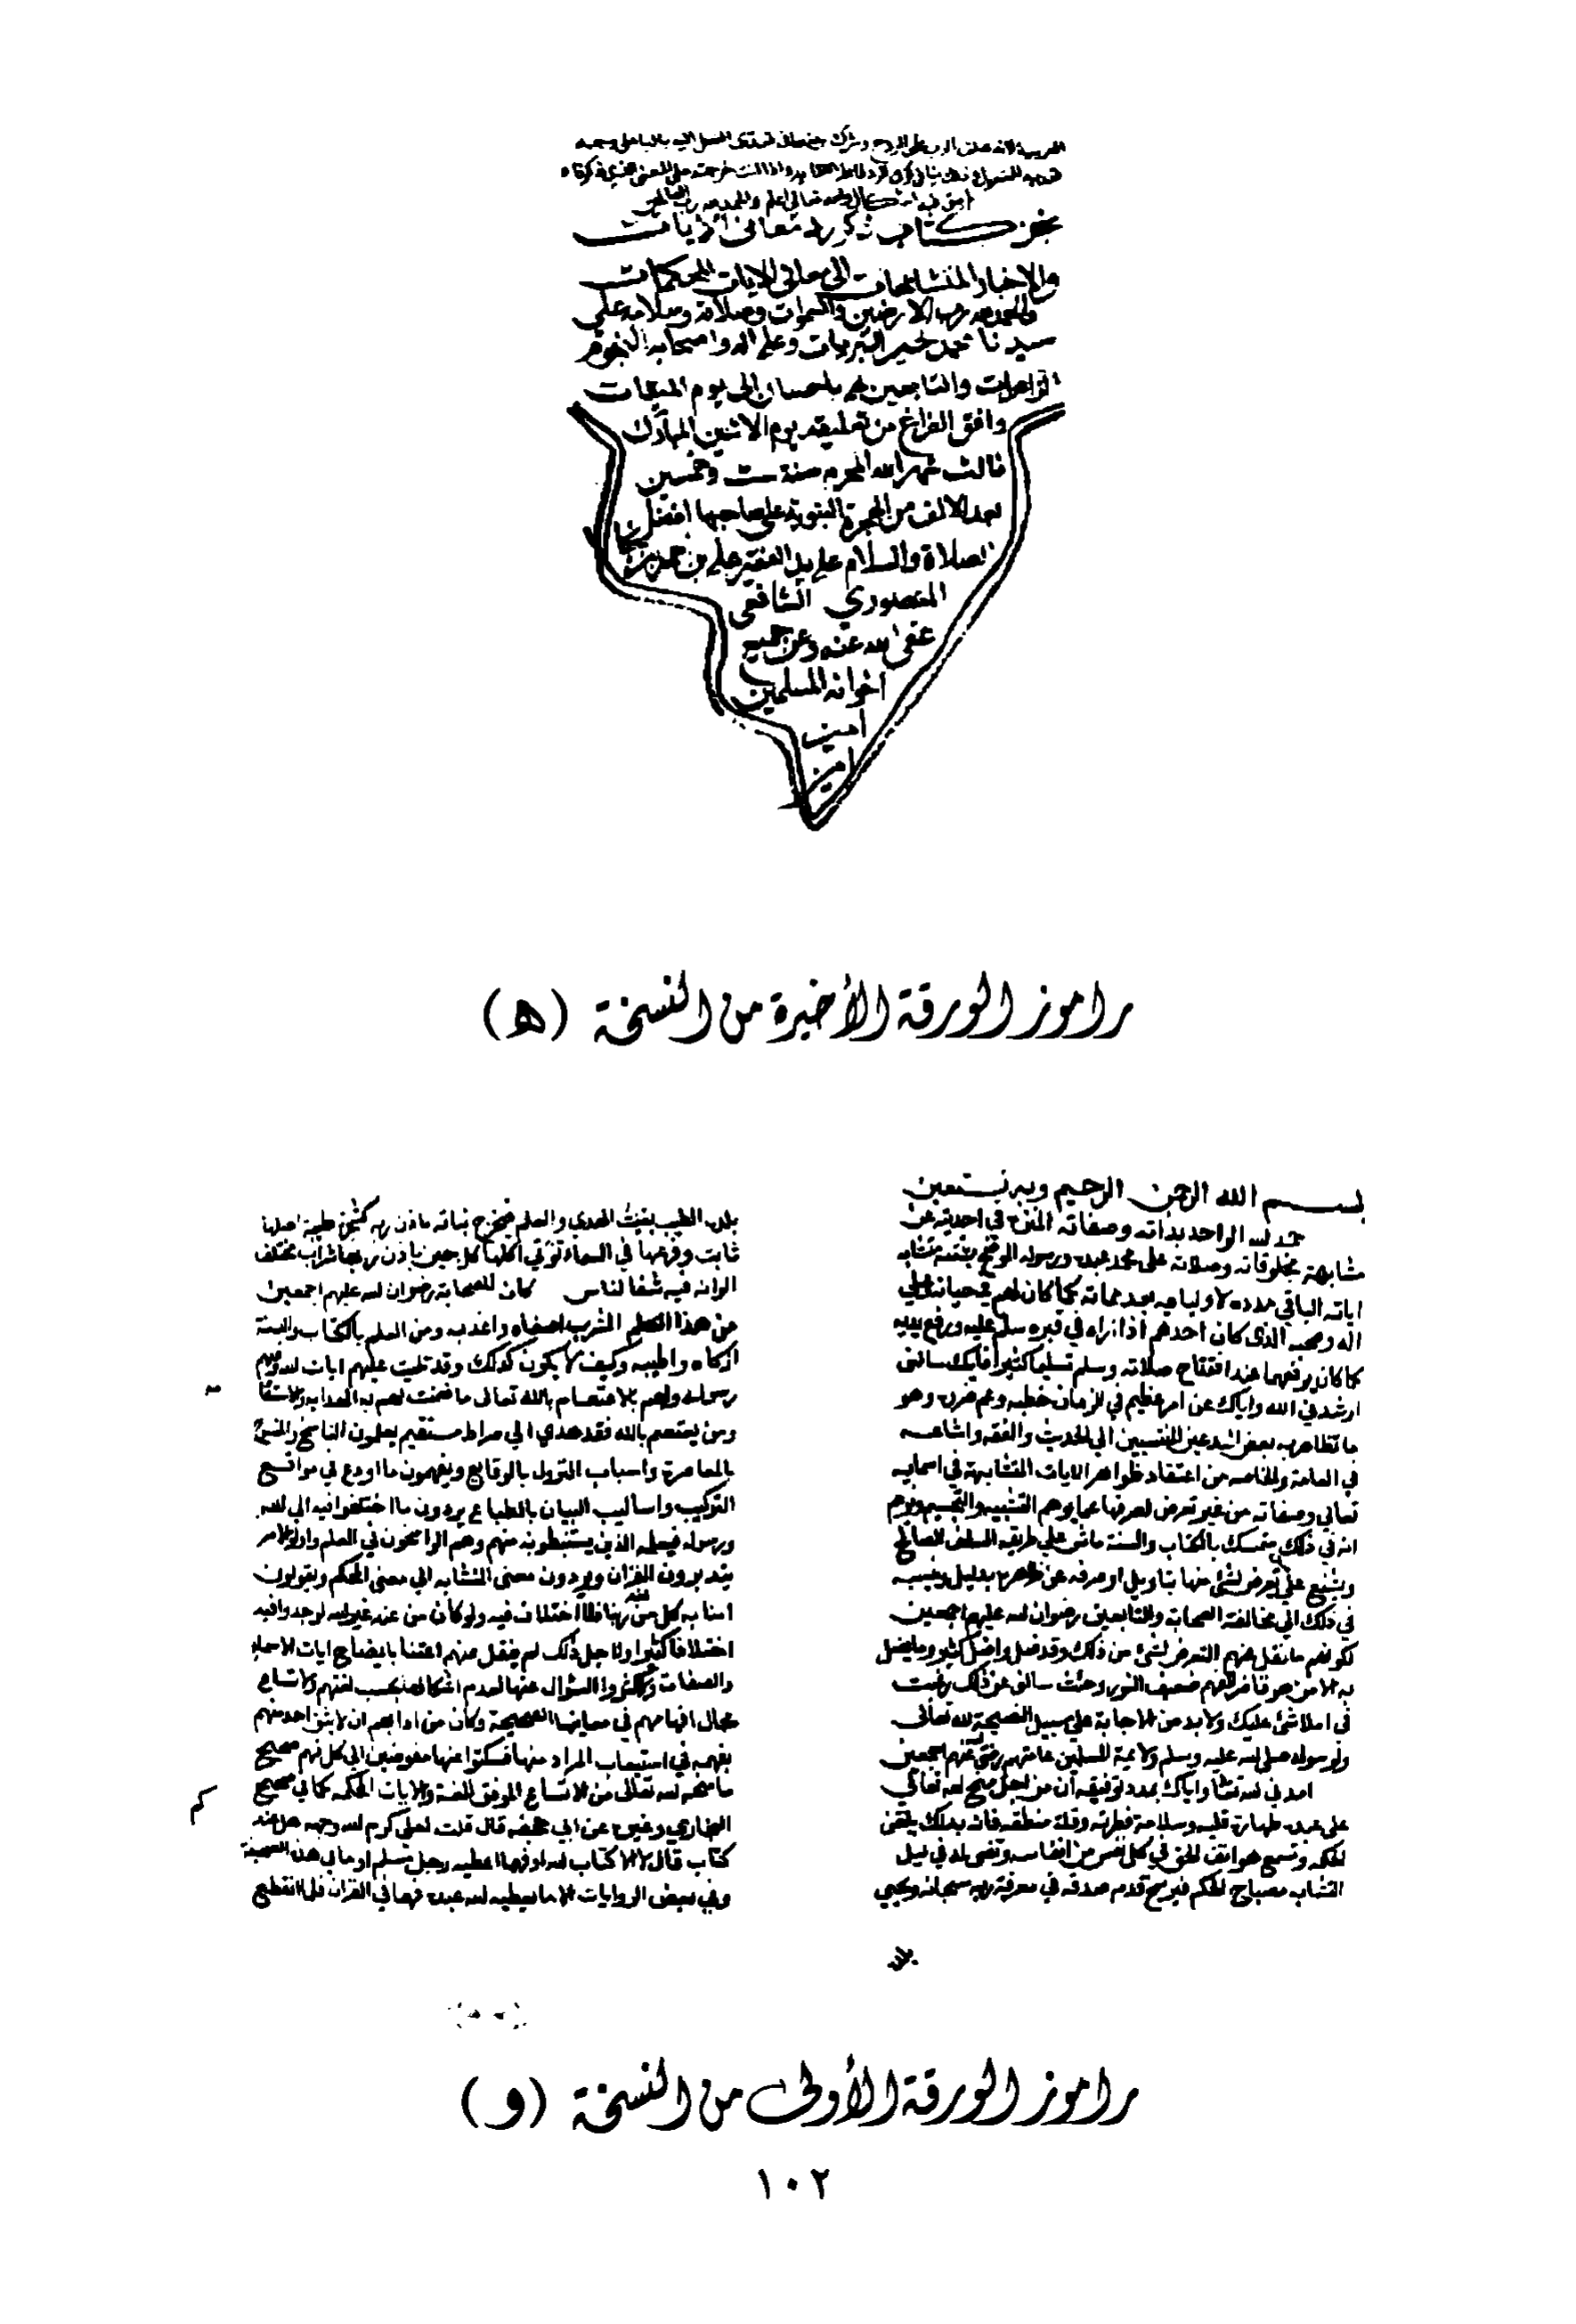 نجز كتاب رد معاني الآيات
والاخبار المتشابهات الى معاني الايات المحكمات
والحمد لله رب الارضين والسموات وصلاته وسلامه على
سيدنا محمد خير البريات وعلى اله واصحابه النجوم
الزاهرات والتابعين لهم باحسان الى يوم الميقات
وافق الفراغ من تعليقه يوم الاثنين المبارك
ثالث شهر الله المحرم سنة ست وخمسين
بعد الالف من الهجرة النبوية على صاحبها افضل
الصلاة والسلام على يد الفقير علي بن
المنصوري الشافعي
عفى الله عنه وعن جميع
اخوانه المسلمين
امين
امين
راموز الورقة الأخيرة من النسخة (ه)
بسم الله الرحمن الرحيم وبه نستعين
حمد لله الواحد بذاته وصفاته المنزه في احديته عن
مشابهة مخلوقاته وصلاته على محمد عبده ورسوله الموضح متشابه
اياته الباقي مدده لاوليايه بعد مماته كما كان لهم في حياته وعلى
اله وصحبه الذي كان احدهم اذا زاره في قبره سلم عليه ورفع يديه
كما كان يرفعهما عند افتتاح صلاته وسلم تسليما كثيرا فانك سالتني
ارشدني الله واياك عن امر عظيم في الزمان خطبه وعم ضرره وهو
ما تظاهر به بعض المنتسبين الى الحديث والفقه واشاعه
في العامة والخاصه من اعتقاد ظواهر الايات المتشابهة في اسمايه
تعالى وصفاته من غير تعرض لصرفها عما يوهم التشبيه والتجسيم ويزعم
انه في ذلك متمسك بالكتاب والسنة ماش على طريقه السلف الصالح
ويشنع على من تعرض لشئ منها بتاويل او صرفه عن ظاهره بدليل وينسبه
في ذلك الى مخالفة الصحابة والتابعين رضوان لله عليهم اجمعين
لكونهم ما نقل عنهم التعرض لشئ من ذلك وقد ضل واضل كثيرا وما يضل
به الا من هو ضعيف النور وحيث سالتني عن ذلك رغبت
في املا شئ عليك ولا بد من الاجابة على سبيل النصيحة لله تعالى
ولرسوله صلى لله عليه وسلم ولايمة المسلمين عامتهم رضي عنهم اجمعين
امدني لله واياك بمدد توفيقه ان من اجل منح لله تعالى
على عبده طهارة قلبه وسلامة فطرته وقلة منطقه فانه بذلك يلقى
الحكمه وتسمع هواتف الحق في كل نفس من انفاسه وتضيء له في ليل
المتشابه مصباح المحكم فيرسخ قدم صدقه في معرفة ربه سبحانه ويحيي
بلده
بلده الطيب بغيث الهدي والعلم فيخرج نباته باذن ربه كشجرة طيبة اصلها
ثابت وفرعها في السماء تؤتي اكلها كل حين باذن ربها شراب مختلف
الوانه فيه شفا للناس كان للصحابة رضوان لله عليهم اجمعين
من هذا العلم المشرب اصفاه واعذبه ومن العلم بالكتاب والسنة
ازكاه واطيبه وكيف لا يكون كذلك وقد تليت عليهم ايات لله وفيهم
رسوله ولهم بالاعتصام بالله تعالى ما ضمنت لهم به الهداية
ومن يعتصم بالله فقد هدي الى صراط مستقيم يعلمون الناسخ والمنسوخ
بالمعاصرة واسباب النزول بالوقايع ويفهمون ما اودع في مواقع
التركيب واساليب البيان بالطباع يردون ما اختلفوا فيه الى لله
ورسوله فيعلمه الذين يستنبطونه منهم وهم الراسخون في العلم واولو الامر
يتدبرون القران ويردون معنى المتشابه الى معنى المحكم ويقولون
امنا به كل من عند ربنا فلا اختلاف فيه ولو كان من عند غير لله لوجدوا فيه
اختلافا كثيرا ولاجل ذلك لم ينقل عنهم اعتنا بايضاح ايات الاسماء
والصفات ولا اكثروا السؤال عنها لعدم اشكالها بحسب لغتهم ولاتساع
مجال افهامهم في معانيها الصحيحة وكان من ادابهم ان لا يثق احد منهم
بفهمه في استيعاب المراد منها فسكتوا عنها مفوضين الى كل فهم صحيح
ما منحه لله تعالى من الاتساع الموفق للغة والايات المحكمه كما في صحيح
البخاري وغيره عن ابي جحيفة قال قلت لعلي كرم لله وجهه هل عند
كتاب قال لا الا كتاب لله او فهما اعطيه رجل مسلم او ما في هذه الصحيفة
وفي بعض الروايات الا ما يعطيه لله عبده فهما في القران فلما انقطع
راموز الورقة الأولى من النسخة (و)
١٠٢